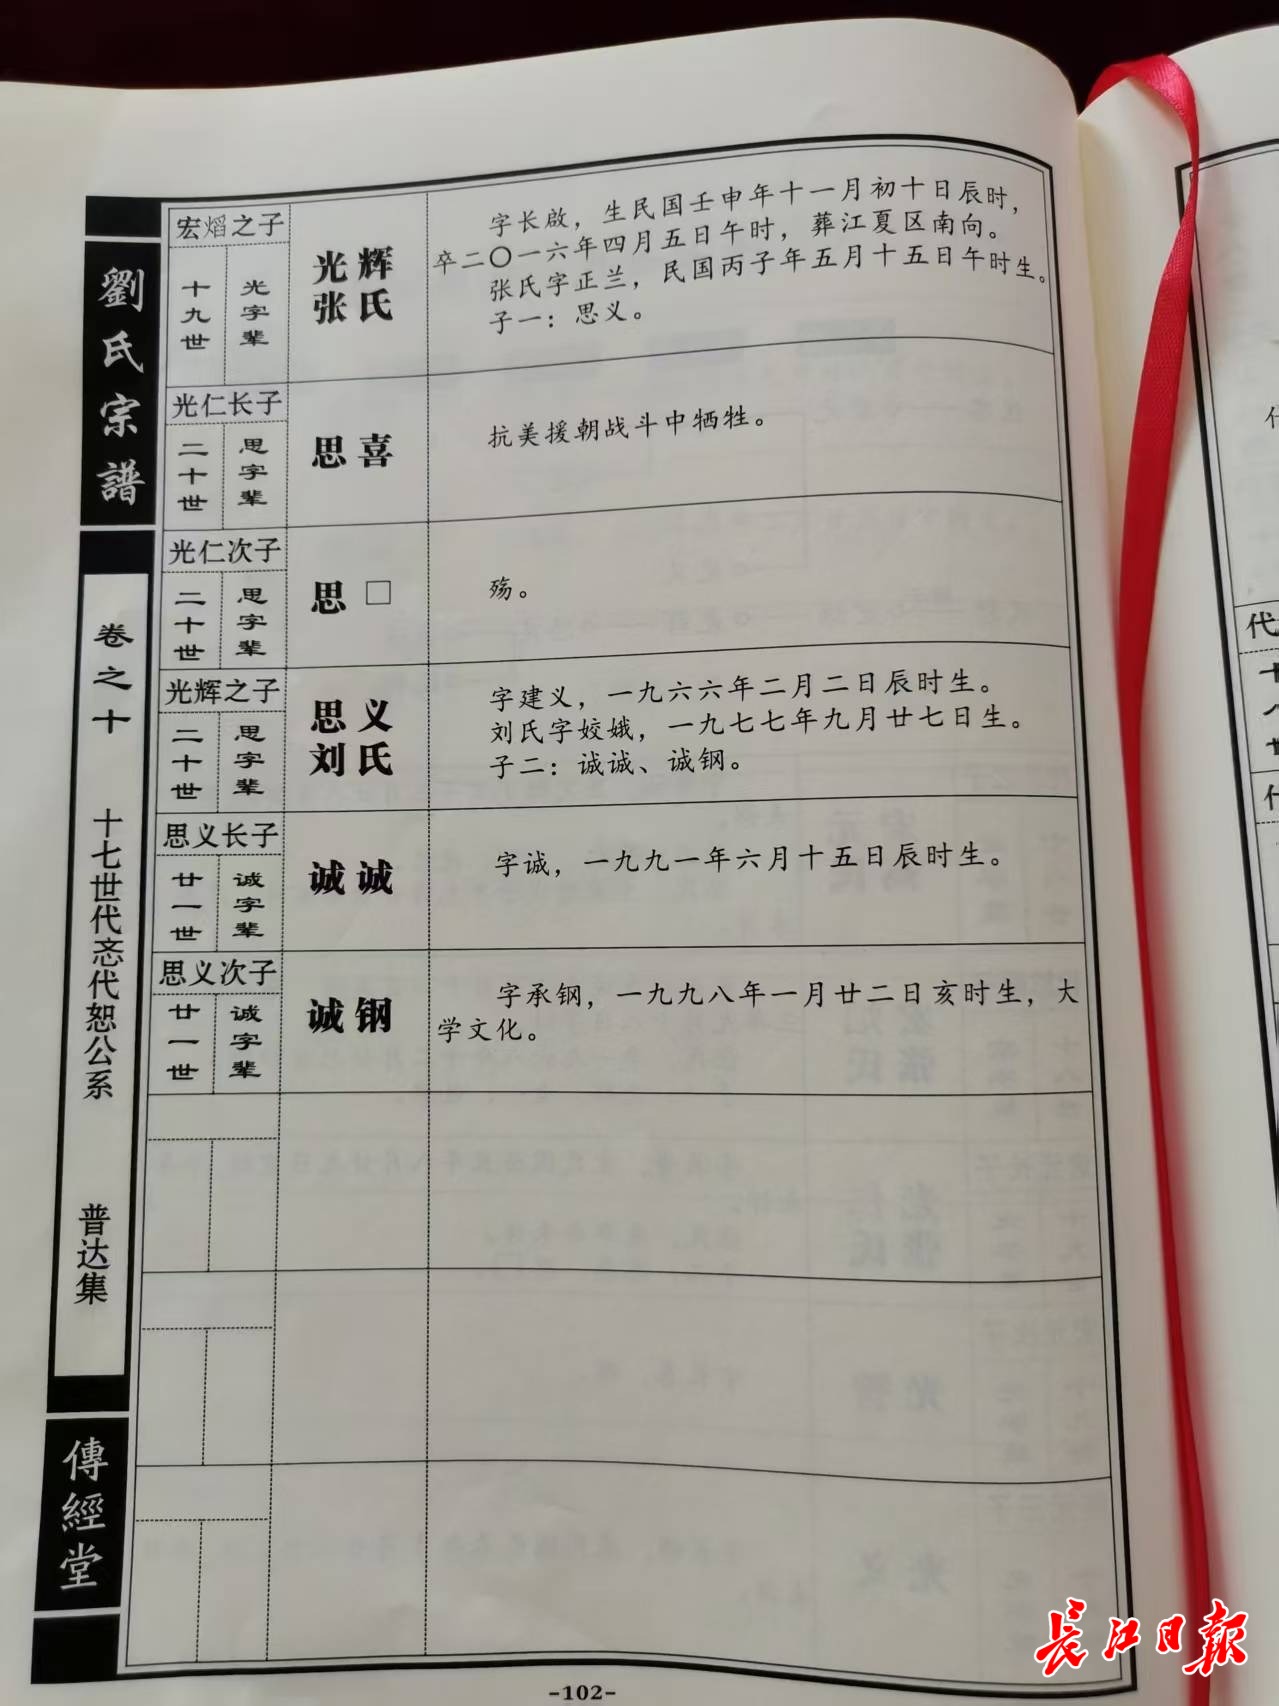 劉氏宗譜
卷之十
十七世代忞代恕公系
普达集
傳經堂
宏熖之子
十九世
光字辈
光辉
张氏
字长啟，生民国壬申年十一月初十日辰时，
卒二〇一六年四月五日午时，葬江夏区南向。
张氏字正兰，民国丙子年五月十五日午时生。
子一：思义。
光仁长子
二十世
思字辈
思喜
抗美援朝战斗中牺牲。
光仁次子
二十世
思字辈
思□
殇。
光辉之子
二十世
思字辈
思义
刘氏
字建义，一九六六年二月二日辰时生。
刘氏字姣娥，一九七七年九月廿七日生。
子二：诚诚、诚钢。
思义长子
廿一世
诚字辈
诚诚
字诚，一九九一年六月十五日辰时生。
思义次子
廿一世
诚字辈
诚钢
字承钢，一九九八年一月廿二日亥时生，大
学文化。
-102-
长江日报